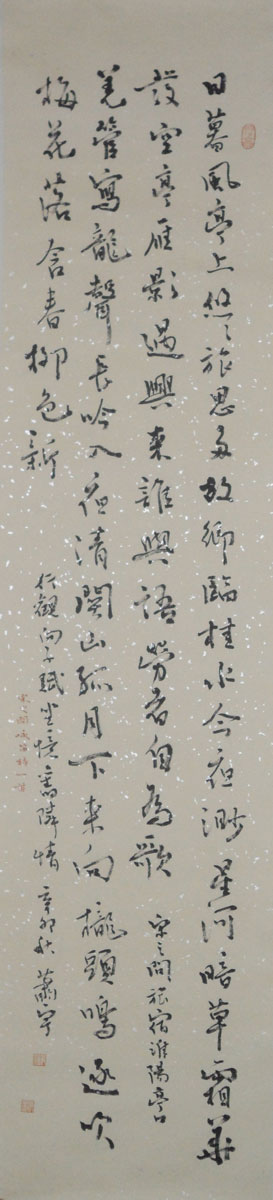 日暮風亭上悠〻旅思多故鄉臨桂水今夜渺星河暗草霜華
發空亭雁影過興來誰與語勞者自為歌 宋之問旅宿淮陽亭口
羌管寫龍聲長吟入夜清關山孤月下來向隴頭鳴逐吹
梅花落含春柳色新
行觀向子賦坐憶舊隣情 辛卯秋 蕭寧